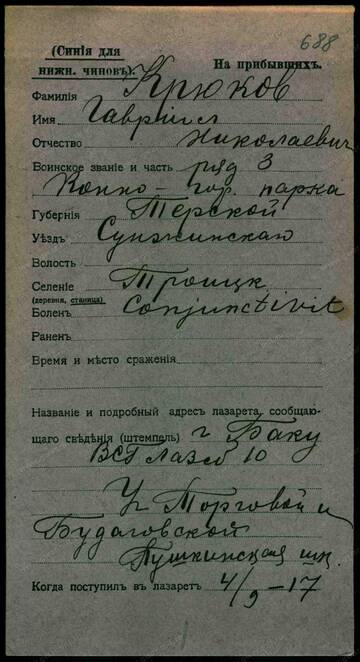 688
(Синія для
нижн. чиновъ).
На прибывшихъ.
Фамилія Крюков
Имя Гавріил
Отчество Николаевич
Воинское званіе и часть ряд 3
Конно-гор. парка
Губернія Терской
Уѣздъ Сунженскаго
Волость
Селеніе Троицк
(деревня, станица)
Боленъ Conjunctivit
Раненъ
Время и мѣсто сраженія
Названіе и подробный адресъ лазарета, сообщаю-
щаго свѣдѣнія (штемпель) г Баку
ВСГ лазар 10
Уг Торговой и
Будаговской
Пушкинская шк.
Когда поступилъ въ лазаретъ 4/9-17